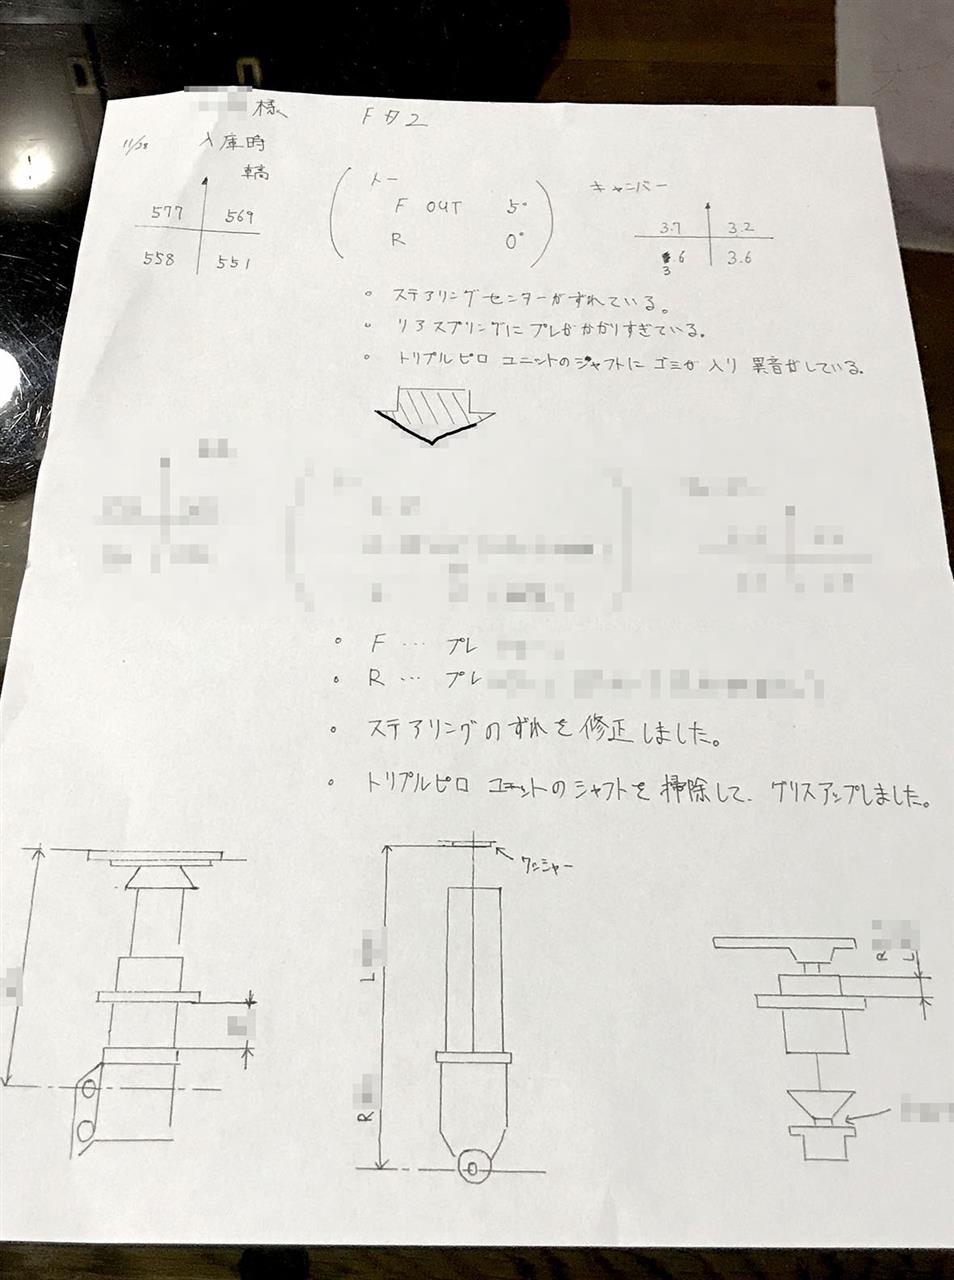 様 FD2
11/28 入庫時
車高
577 569
558 551
トー
F OUT 5°
R 0°
キャンバー
3.7 3.2
3.6 3.6
• ステアリングセンターがずれている。
• リアスプリングにプレがかかりすぎている。
• トリプルピロ ユニットのシャフトに ゴミが 入り 異音がしている。
• F … プレ
• R … プレ
• ステアリングのずれを修正しました。
• トリプルピロ ユニットのシャフトを掃除して、グリスアップしました。
ワッシャー
L
R
R
L